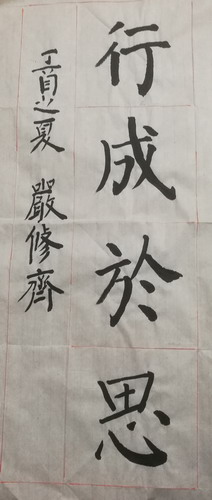 行成於思
丁酉之夏 嚴修齊